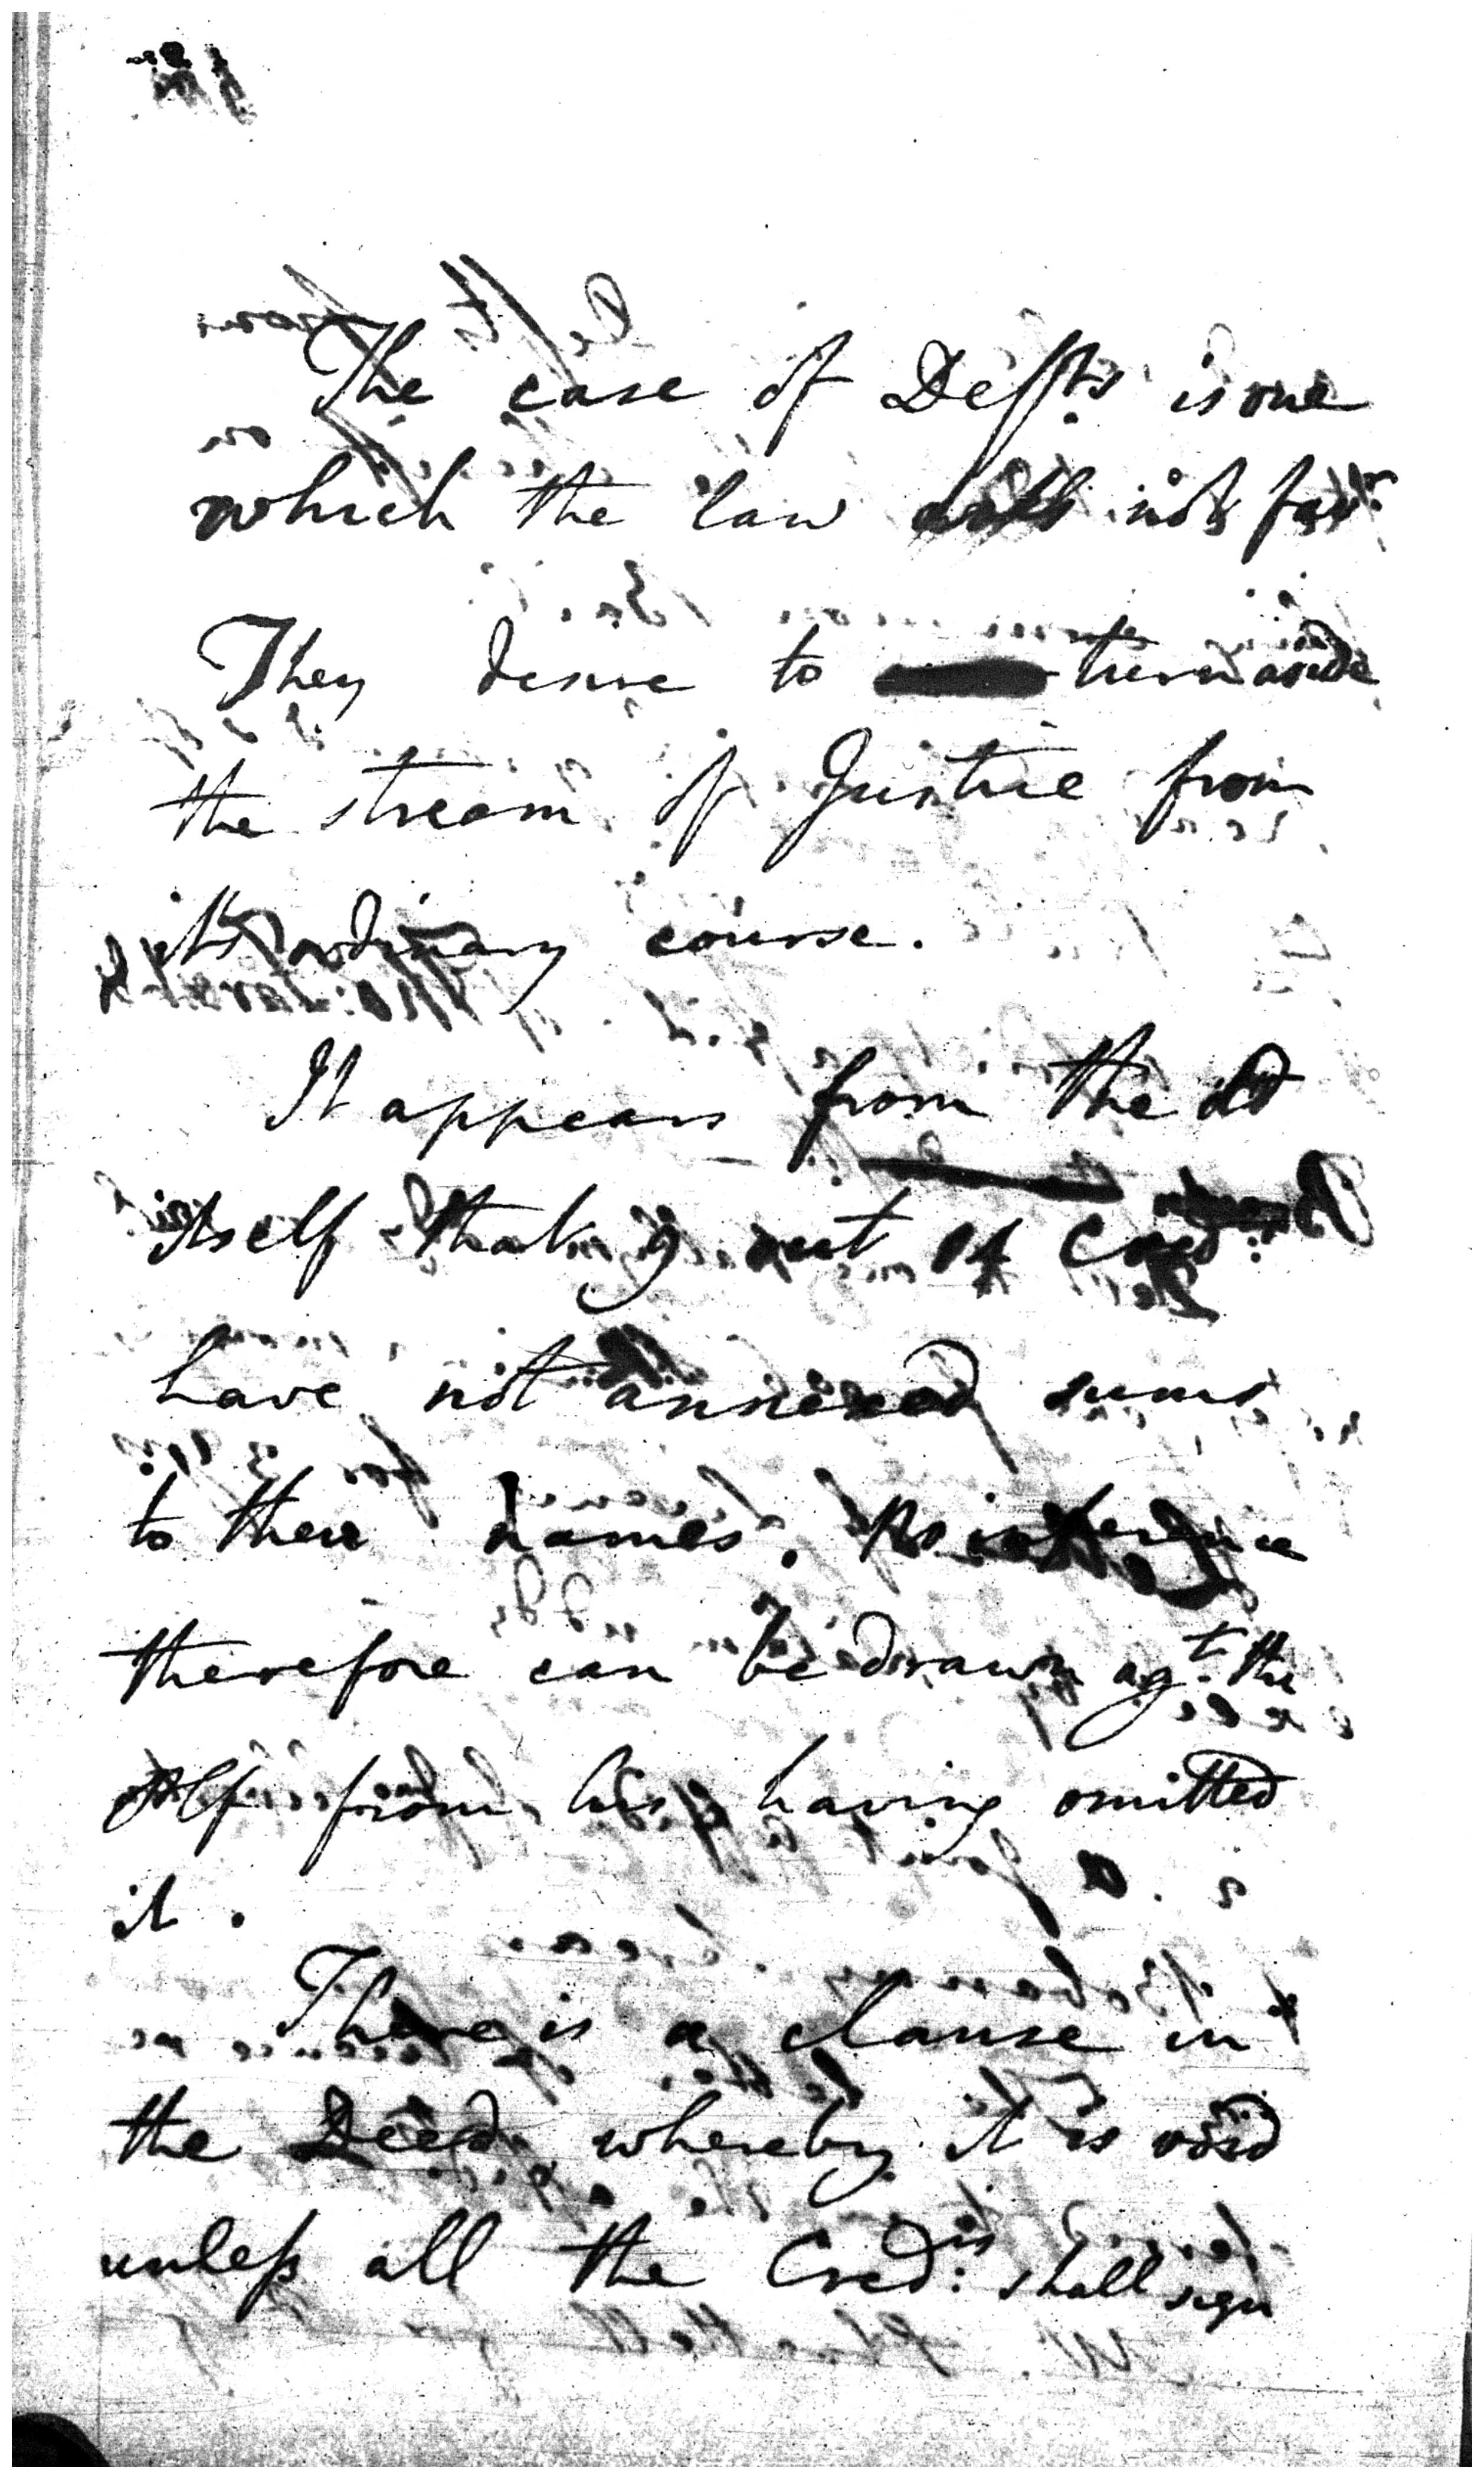 The case of Deffts is one
which the law does not favr
They desire to turn aside
the stream of Justice from
its ordinary course.
It appears from the
itself that 9 out of Cred:
have not annexed sums
to their names. No inference
therefore can be drawn agt. the
Plf from his having omitted
it.
There is a clause in
the Deed whereby it is void
unless all the Credrs: shall sign